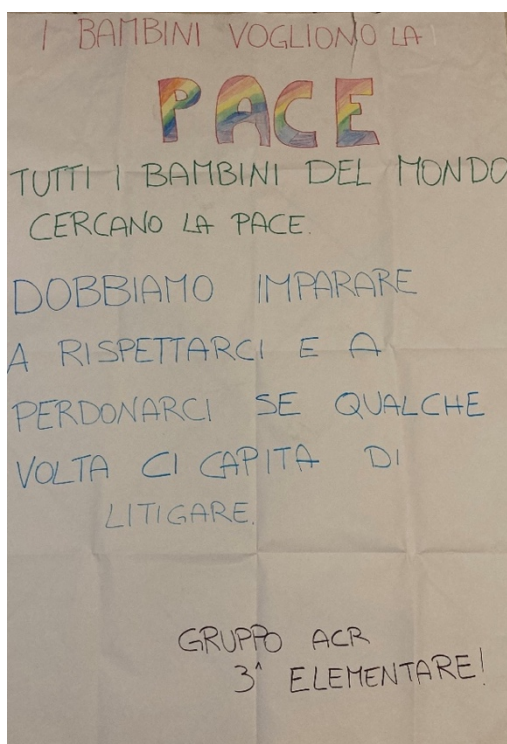 I BAMBINI VOGLIONO LA
PACE
TUTTI I BAMBINI DEL MONDO
CERCANO LA PACE.
DOBBIAMO IMPARARE
A RISPETTARCI E A
PERDONARCI SE QUALCHE
VOLTA CI CAPITA DI
LITIGARE.
GRUPPO ACR
3^ ELEMENTARE!